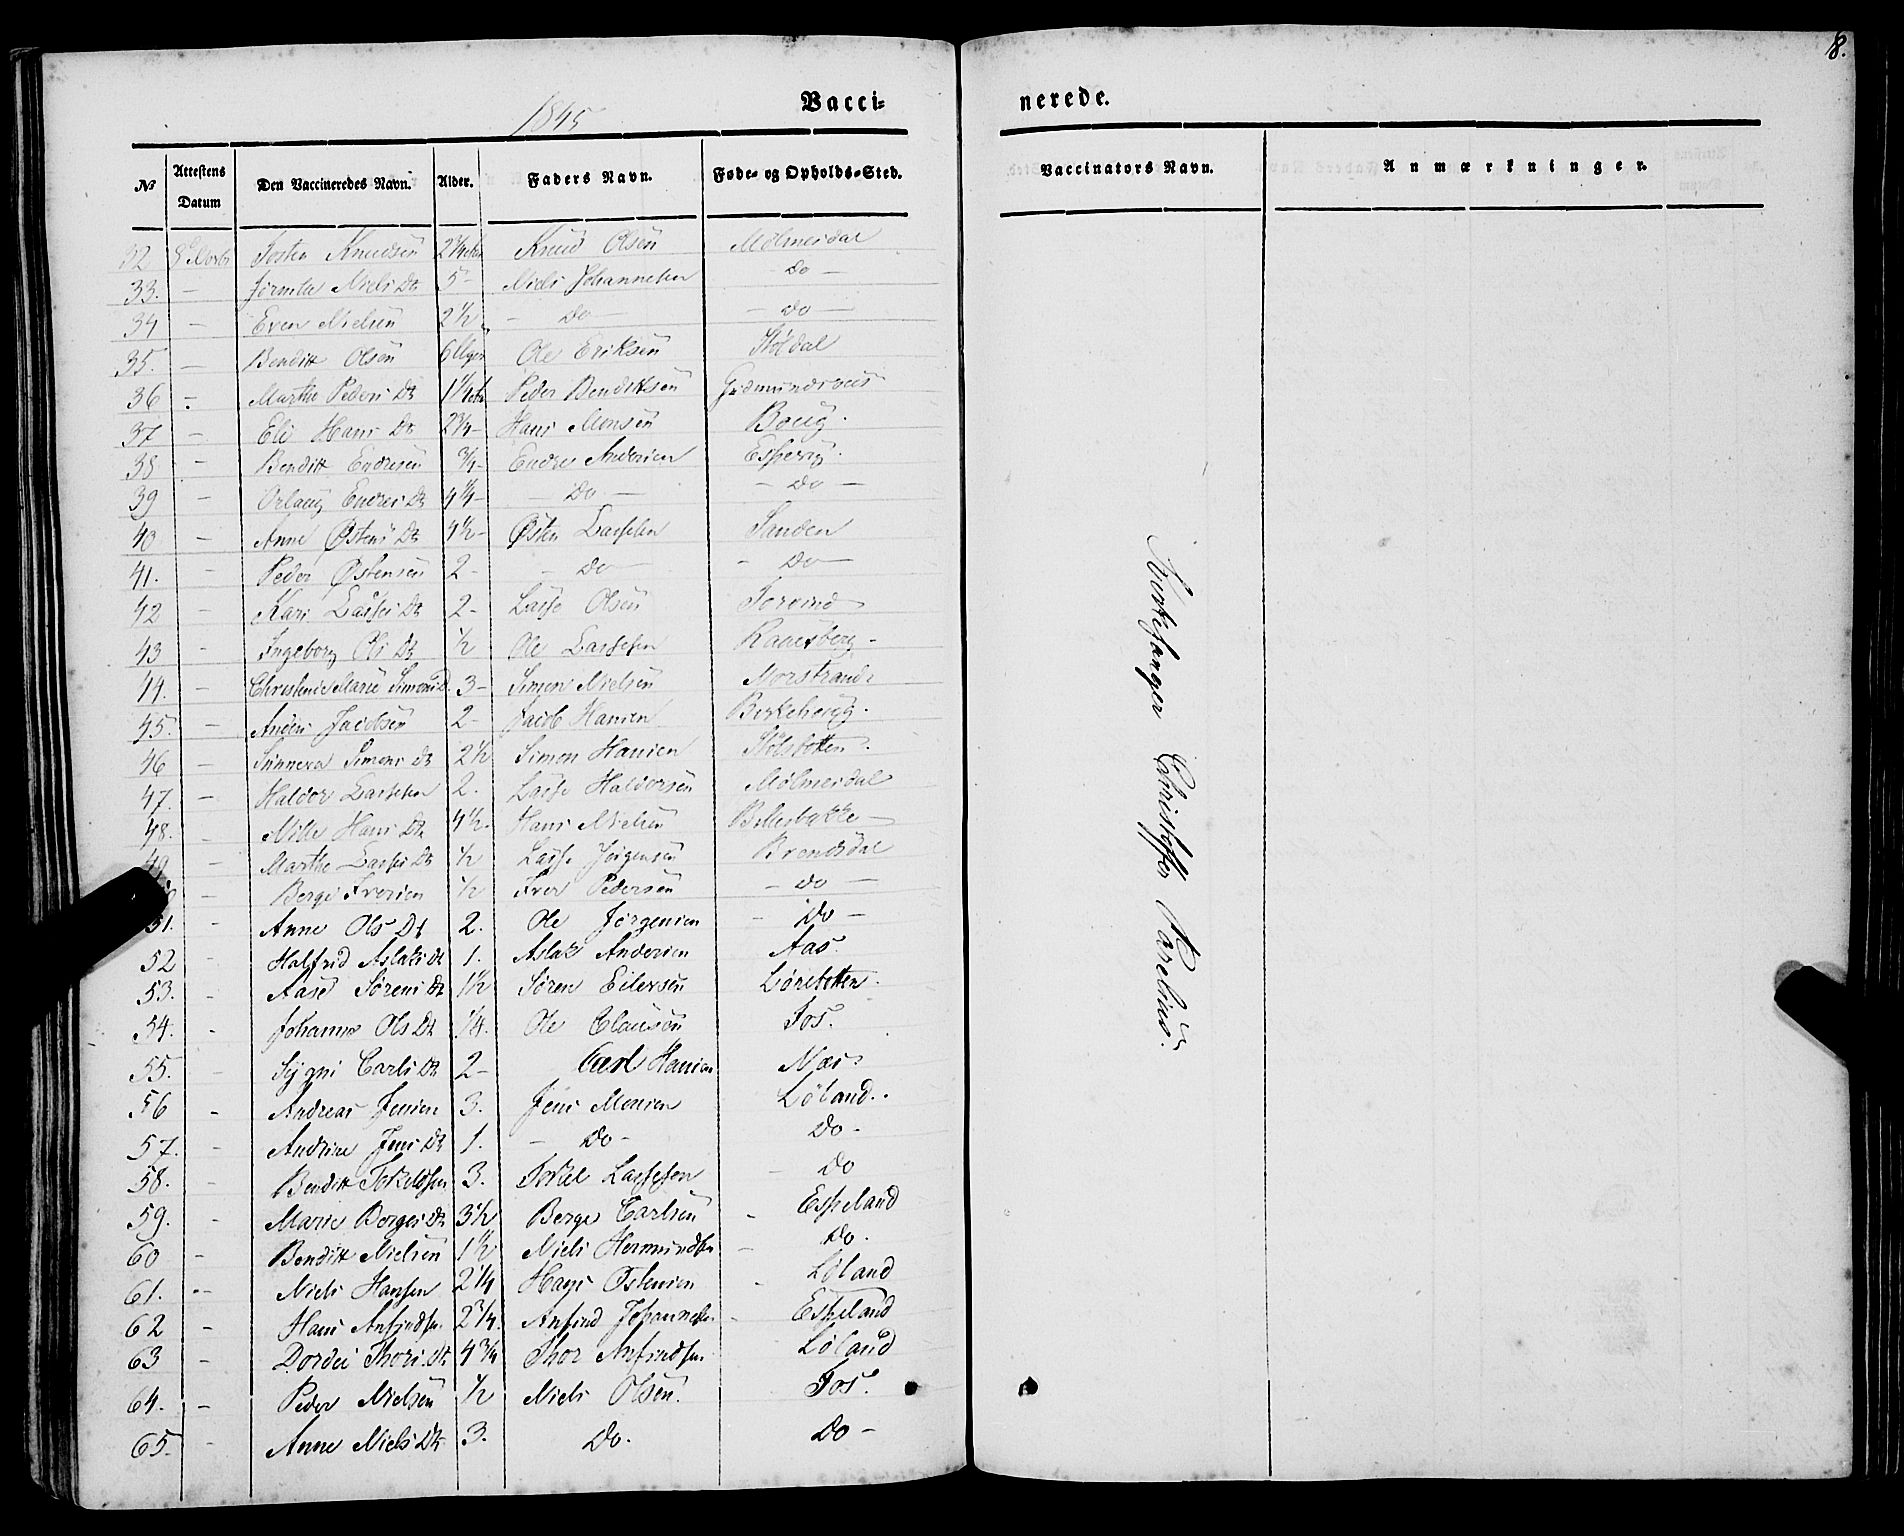 8.
1845 Vacci- nerede.
No Attestens Datum Den Vaccineredes Navn. Alder. Faders Navn. Føde- og Opholds-Sted. Vaccinators Navn. Anmærkninger.
32 Knudsen 2 3/4 Knud Olsen Mølmesdal
33. — Niels Dt 5- Niels Johannesen — Do —
34 — Even Nielsen 2 1/2 — Do — — Do —
35. — Benditt Olsen 6 Ole Eriksen Støldal
36 - Marthe Peders Dt 1 1/4 Peder Bendittsen
37 — Eli Hans Dt 2 3/4- Hans Monsen Boug.
38 - Benditt Endresen 3/4- Endre Andersen
39 - Endres Dt 4 1/4- — Do. — — Do —
40 — Anne Østens Dt 4 1/2- Østen Lassesen Sanden
41. - Peder Østensen 2- — Do — - Do —
42 - Kari Lasses Dt 2- Lasse Olsen
43 - Ingeborg Ols Dt 1/2 Ole Lassesen
44. — Christense Marie Simons D. 3- Simon Nielsen Norstrand
45. — Anders Jacobsen 2- Jacob Hansen
46 — Sunneva Simons Dt 2 1/2 Simon Hansen Stølsbotten.
47. — Haldor Lassesen 2. Lasse Haldorsen Mølmesdal
48. — Hans Dt 4 1/2. Hans Nielsen
49. — Marthe Lasses Dt 1/2 Lasse Jørgensen
— Berge Iversen 1/2 Iver Pedersen — Do —
51. - Anne Ols Dt 2. Ole Jørgensen — Do —
52 - Halfrid Aslaks Dt 1. Aslak Andersen Aas.
53. - Aase Sørens Dt 1 1/2 Søren Eilersen
54. - Johanne Ols Dt 1/4. Ole Clausen Fos.
55. — Carls Dt 2- Carl Hansen Næs
56 - Andreas Jensen 3. Jens Monsen Løland.
57. - Andrine Jens Dt 1. — Do - Do -
58. - Benditt Torkeldsen 3. Torkel Lassesen — Do
59. - Marie Berges Dt 3 1/2 Berge Carlsen - Espeland
60 - Benditt Nielsen 1 1/2 Niels Hermundsen — Do.
61. - Niels Hansen 2 1/4 Hans Østensen - Løland
62 - Hans Anfindsen 2 3/4. Anfind Johannesen - Espeland
63 - Dordei Thors Dt 4 3/4 Thor Anfindsen Løland
64. - Peder Nielsen 1/2 Niels Olsen. Fos.
65. - Anne Niels Dt 3. Do. Do -
Kirkesanger Christoffer Parelius.